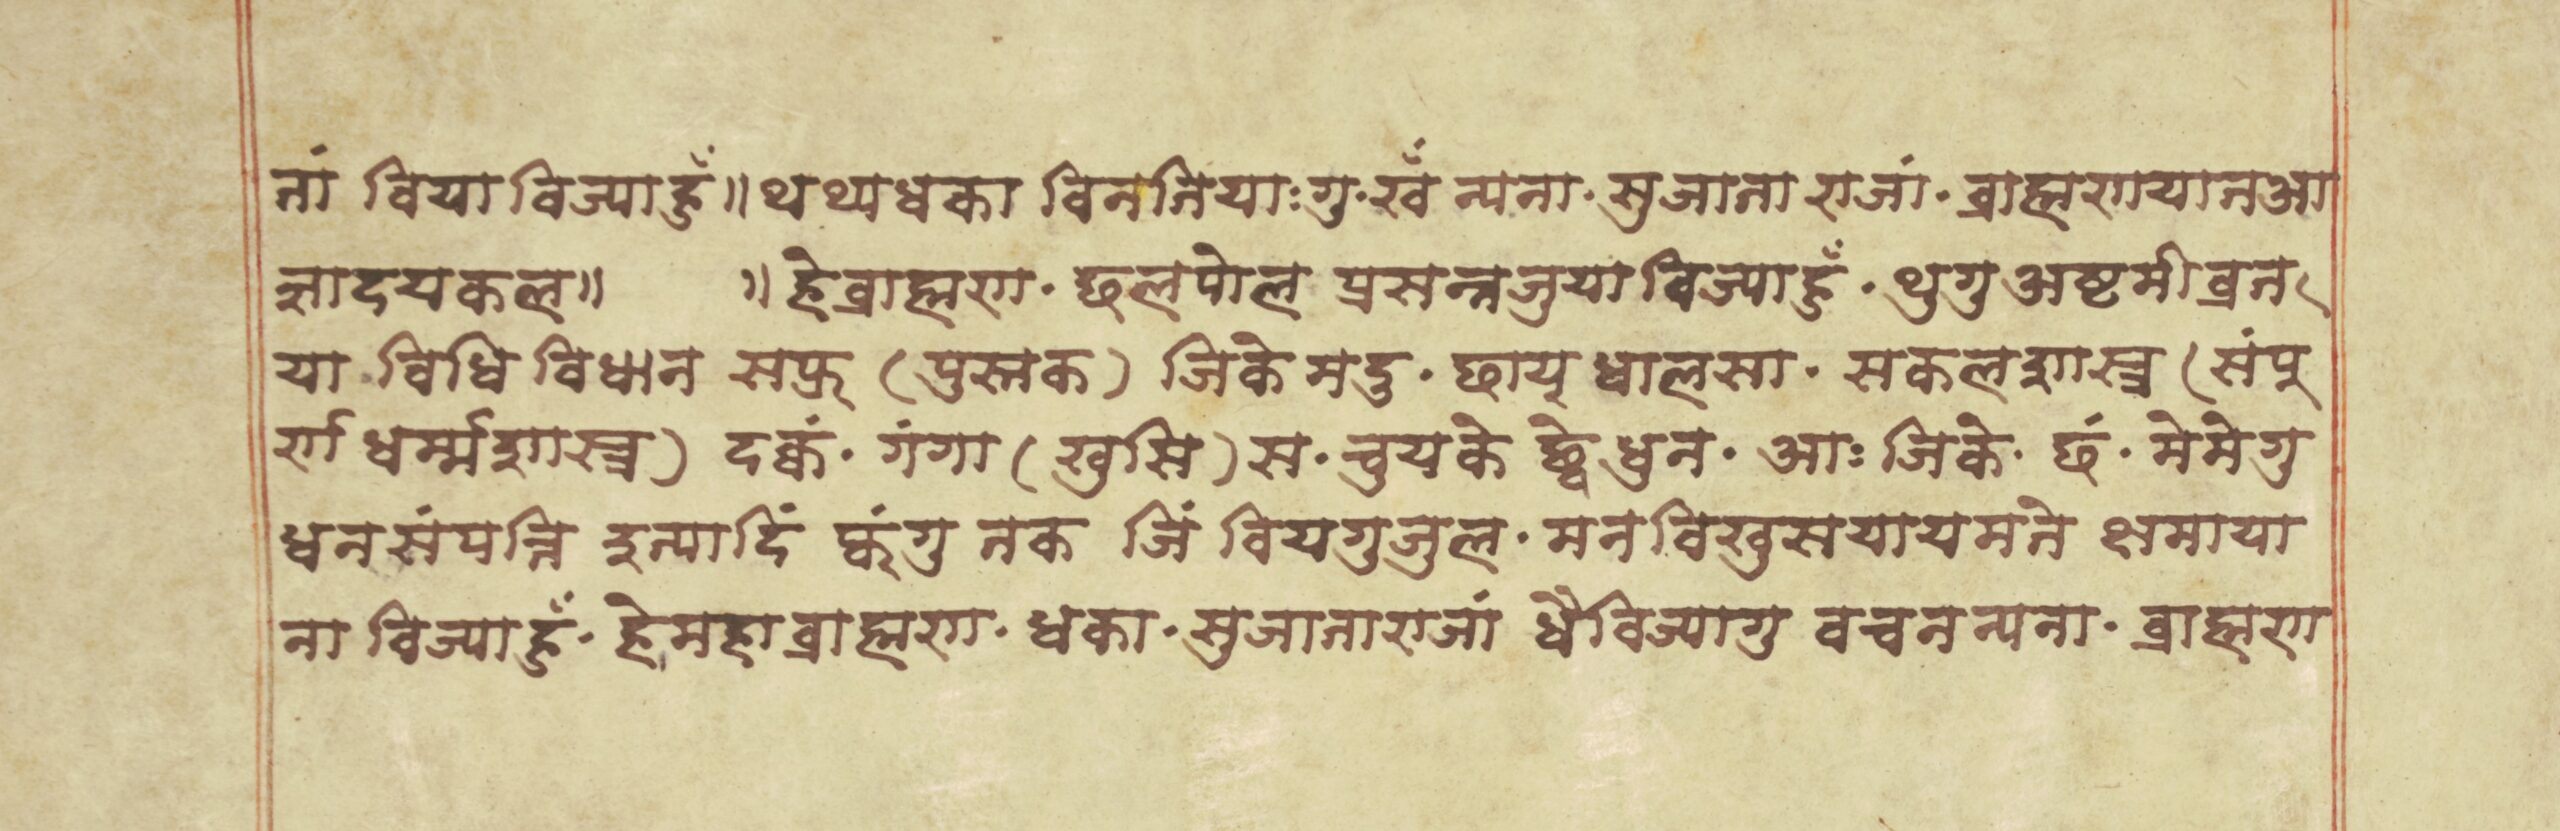 नां वियाविज्याहुँ॥ थथ्यधका विनतियाःगु·खँ न्यना·सुजाता राजां·ब्राह्मणयातआ
ज्ञादयकल॥ ॥हेब्राह्मण·छलपोल प्रसन्नजुयाविज्याहुँ·थुगुअष्टमीव्रत
या विधि विधान सफू (पुस्तक) जिके मदु·छाय्‌धालसा·सकलशास्त्र (संपू
र्ण धर्म्मशास्त्र) दक्वं·गंगा (खुसि) स·चुयके छ्वेधुन·आः जिके·छं·मेमेगु
धनसंपत्ति इत्यादिं फ्वंगु तक जिं वियगुजुल·मनविखुसयायमते क्षमाया
ना विज्याहुँ·हेमहाब्राह्मण·धका·सुजाताराजां धैविज्यागु वचनन्यना·ब्राह्मण